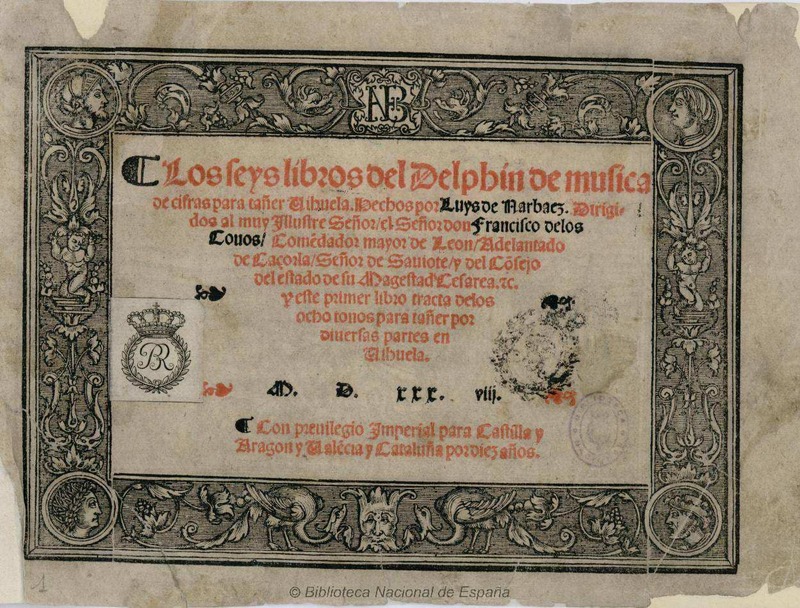 AB
¶ Los seys libros del Delphin de musica
de cifras para tañer Uihuela. Hechos por Luys de Narbaez. Dirigi-
dos al muy Illustre Señor/ el Señor don Francisco delos
Couos/ Comẽdador mayor de Leon/ Adelantado
de Caçorla/ Señor de Sauiote/ y del Cõsejo
del estado de su Magestad Cesarea. ꝛc.
y este primer libro tracta delos
ocho tonos para tañer por
diuersas partes en
Uihuela.
BR
M. D. xxx. viij.
¶ Con preuilegio Imperial para Castilla y
Aragon y Valẽcia y Cataluña por diez años.
1
© Biblioteca Nacional de España